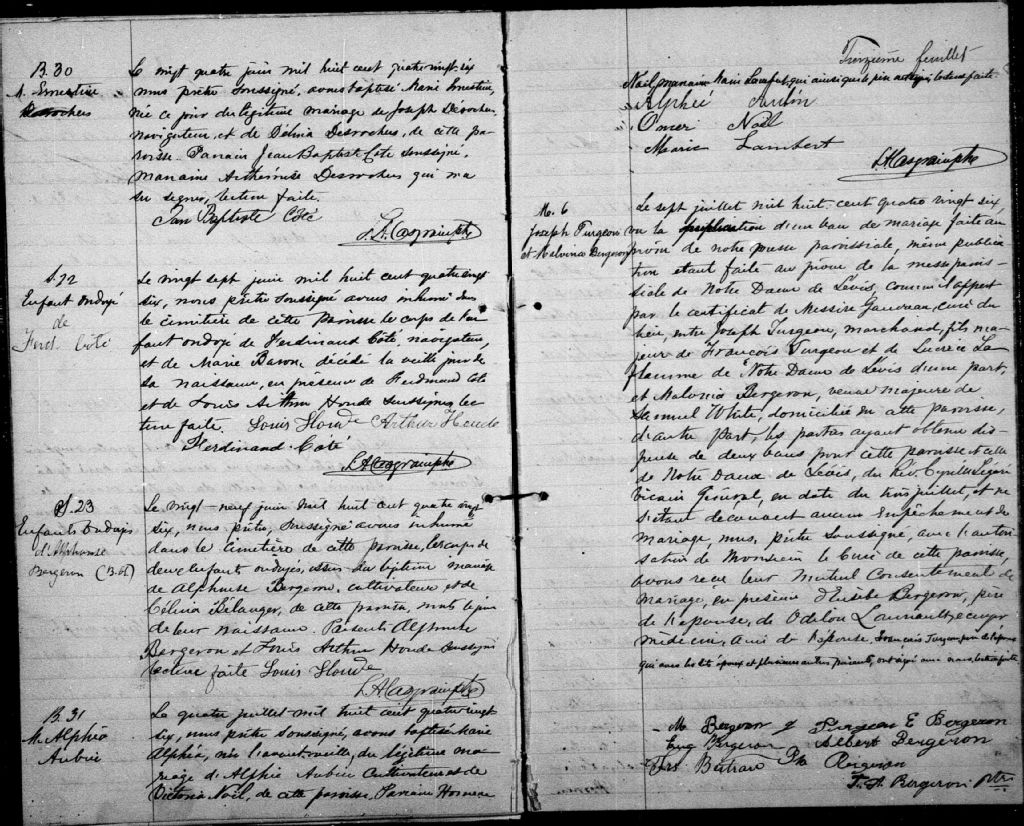 B. 30
M. Ernestine
Desrochers
Le vingt quatre juin mil huit cent quatre vingt six
nous prêtre soussigné, avons baptisé Marie Ernestine,
née ce jour du légitime mariage de Joseph Desrochers,
navigateur, et de Délima Desrochers, de cette pa-
roisse. Parrain Jean Baptiste Côté soussigné,
marraine Desrochers qui n'a
su signer, lecture faite.
Jean Baptiste Côté
L. A. Casgrain ptre
S. 22
Enfant ondoyé
de
Ferd. Côté
Le vingt sept juin mil huit cent quatre vingt
six, nous prêtre soussigné avons inhumé dans
le cimetière de cette paroisse le corps de l'en
fant ondoyé de Ferdinand Côté, navigateur,
et de Marie Baron, décédé la veille jour de
sa naissance, en présence de Ferdinand Côté
et de Louis Arthur Houde soussignés, lec
ture faite. Louis Houde Arthur Houde
Ferdinand Côté
L. A. Casgrain ptre
S. 23
Enfants ondoyés
d'Alphonse
Bergeron
Le vingt-neuf juin mil huit cent quatre vingt
six, nous, prêtre, soussigné avons inhumé
dans le cimetière de cette paroisse, les corps de
deux enfants ondoyés, issus du légitime mariage
de Alphonse Bergeron, cultivateur et de
Célina Bélanger, de cette paroisse, morts le jour
de leur naissance. Présents Alphonse
Bergeron et Louis Arthur Houde soussignés
lecture faite Louis Houde
L. A. Casgrain ptre
B. 31
M. Alphéé
Aubin
Le quatre juillet mil huit cent quatre vingt
six, nous prêtre soussigné, avons baptisé Marie
Alphéa, née l'avant veille, du légitime ma
riage d'Alphée Aubin cultivateur et de
Victoria Noël, de cette paroisse. Parrain
Treizième feuillet
Noël, marraine Marie Lambert, qui ainsi que le père ont signé lecture faite.
Alphéé Aubin
Omer Noël
Marie Lambert
L. A. Casgrain ptre
M. 6
Joseph Turgeon
et Malvina Bergeron
Le sept juillet mil huit cent quatre vingt six,
vu la publication d'un ban de mariage faite au
prône de notre messe paroissiale, même publica
tion étant faite au prône de la messe parois-
siale de Notre Dame de Lévis, comme il appert
par le certificat de Messire Gauvreau, curé du
lieu, entre Joseph Turgeon, marchand, fils ma-
jeur de François Turgeon et de Lucrèce La
flamme de Notre Dame de Lévis d'une part,
et Malvina Bergeron, veuve majeure de
Samuel White, domiciliée en cette paroisse,
d'autre part, les parties ayant obtenu dis-
pense de deux bans pour cette paroisse et celle
de Notre Dame de Lévis, du Rév. Cyrille Légaré
vicaire Général, en date du trois juillet, et ne
s'étant découvert aucun empêchement de
mariage, nous, prêtre soussigné, avec l'autori
sation de Monsieur le Curé de cette paroisse,
avons reçu leur mutuel consentement de
mariage, en présence d'Eusèbe Bergeron, père
de l'épouse, de Odilon ecuyer
médecin, ami de l'épouse, François Turgeon père de l'époux
qui avec les dits époux et plusieurs autres parents, ont signé avec nous, lecture faite
M Bergeron J Turgeon E Bergeron
Eug Bergeron Albert Bergeron
Frs Bertrand Ph Bergeron
F. A. Bergeron ptre